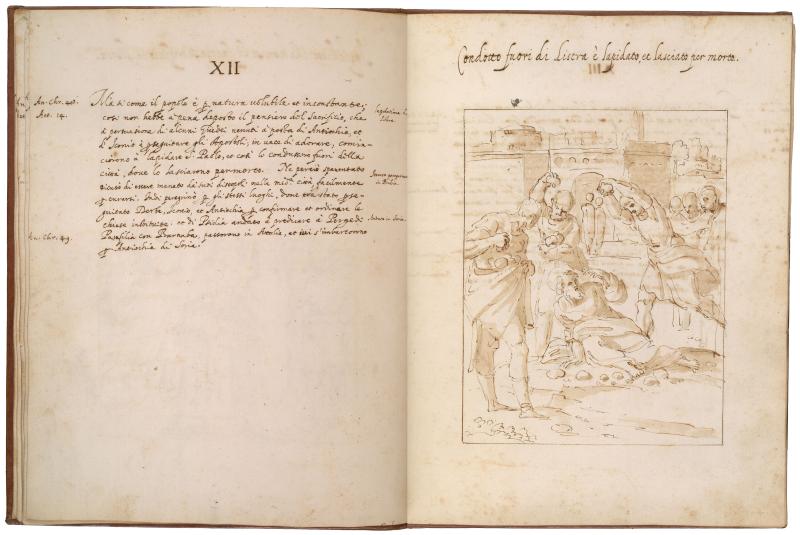 XII
An. Chr. 48.
Act. 14.
Ma si come il popolo è p natura volubile et inconstante;
cosi non hebbe à pena deposto il pensiero del Sacrificio, che
à persuasione di alcuni Giudei venuti à posta di Antiochia, et
d'Iconio à perseguitare gli Apostoli, in vece di adorare, comin-
ciorono à lapidare S. Paolo, et così lo condussero fuori della
città, dove lo lasciarono per morto. Ne perciò spaventato
di essere menato da suoi discepoli nella città, facilmente
p curarsi. Indi peregrinò p gli stessi luoghi, dove era stato, p se-
guitando Derbe, Iconio, et Antiochia, p confirmare et ordinare le
chiese instituite; et di Pisidia andato à predicare à Perge di
Panfilia con Barnaba, passorono in Attalia, et ivi s'imbarcorno
p Antiochia di Soria.
An. Chr. 49.
in Soria.
Condotto fuori di Listra è lapidato, et lasciato per morto.
III